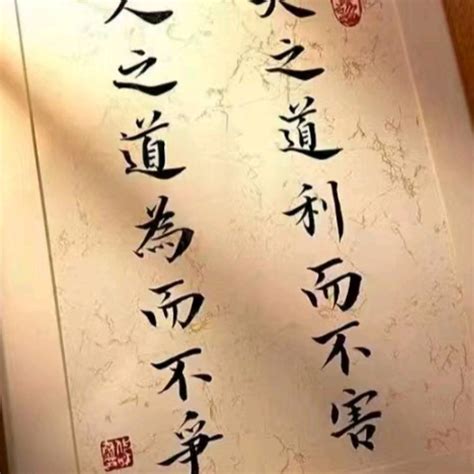 天之道利而不害
人之道為而不爭